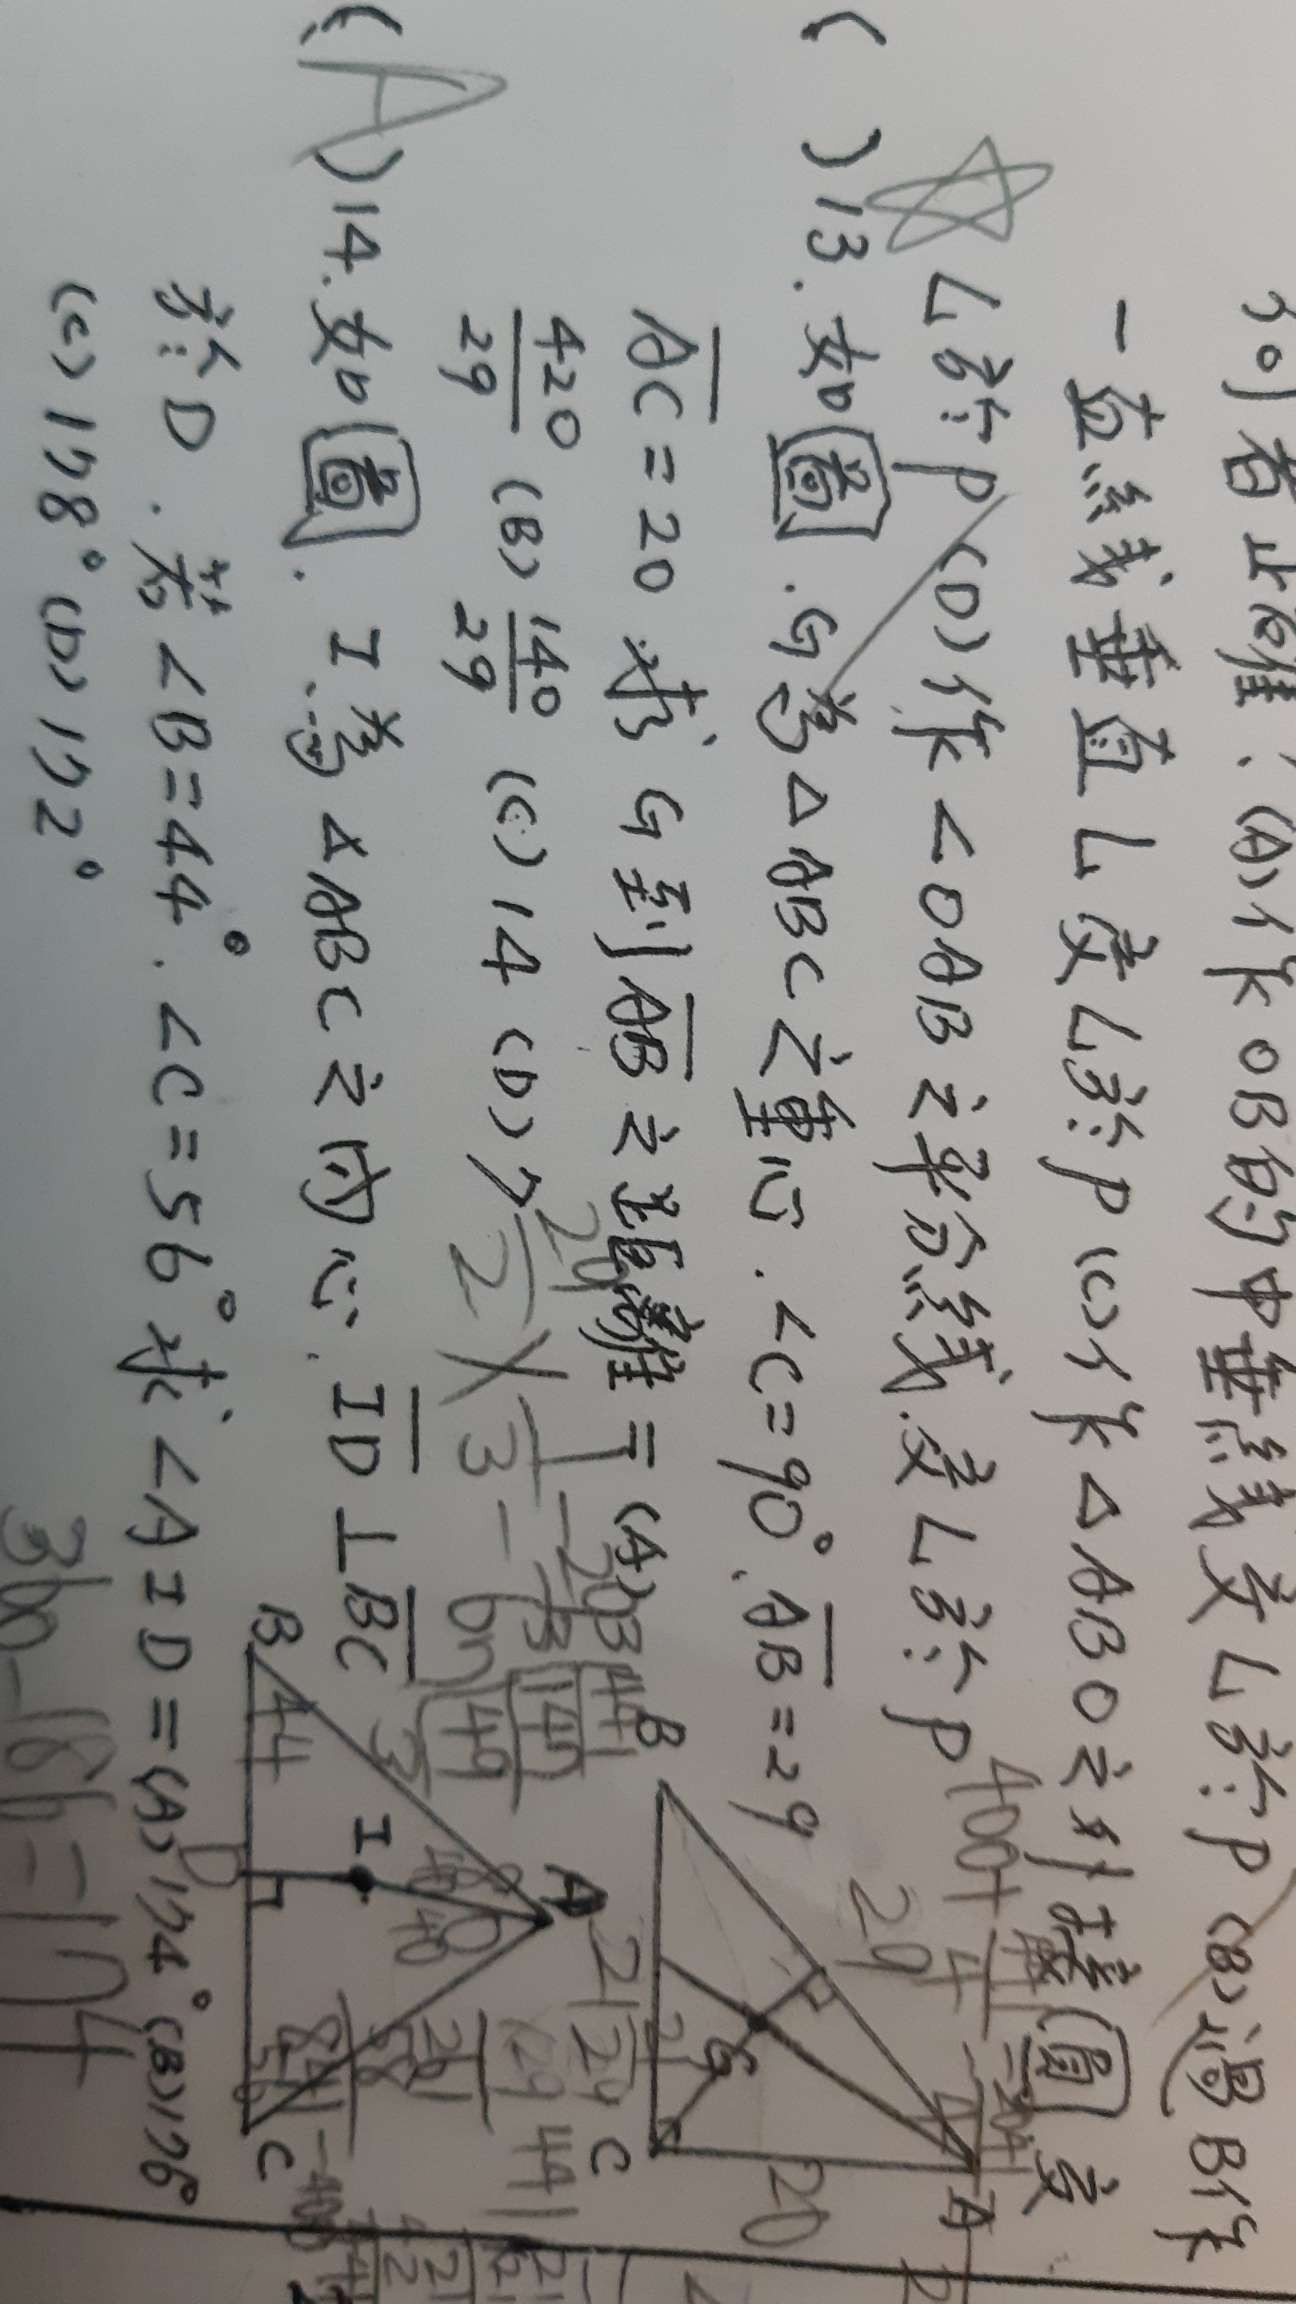 列何者正確？(A)作OB的中垂線交L於P (B)過B作
一直線垂直L交L於P (C)作△ABO之外接圓交
L於P (D)作<OAB之平分線.交L於P
( )13.如圖.G為△ABC之重心.<C=90°.AB=29
AC=20求G到AB之距離=(A)
420/29 (B) 140/29 (C) 14 (D) 7
(A)14.如圖.I為△ABC之內心.ID⊥BC
於D.若<B=44°.<C=56°求<AID=(A)174°(B)176°
(C)178°(D)172°
B
A
C
G
20
21
29
B
A
C
I
D
44
56
40
360-186=174